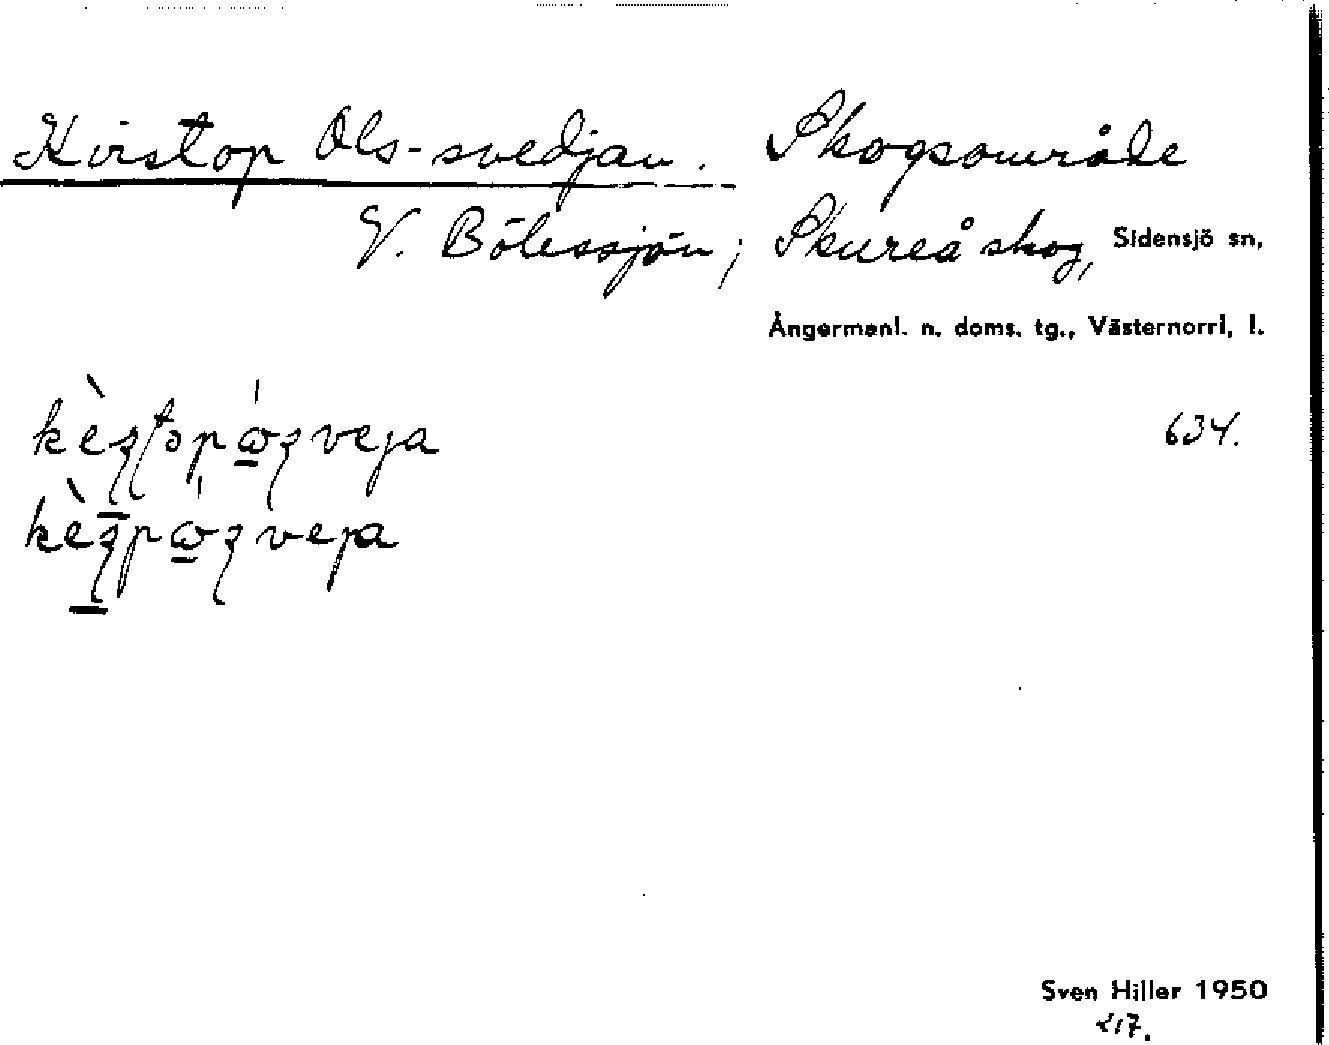 Kirstop Ols-svedjan. Skogsområde
V. Bölessjön; Skureå skog, Sidensjö sn,
Ångermanl. n. doms. tg., Västernorrl, l.
634.
Sven Hiller 1950
217.